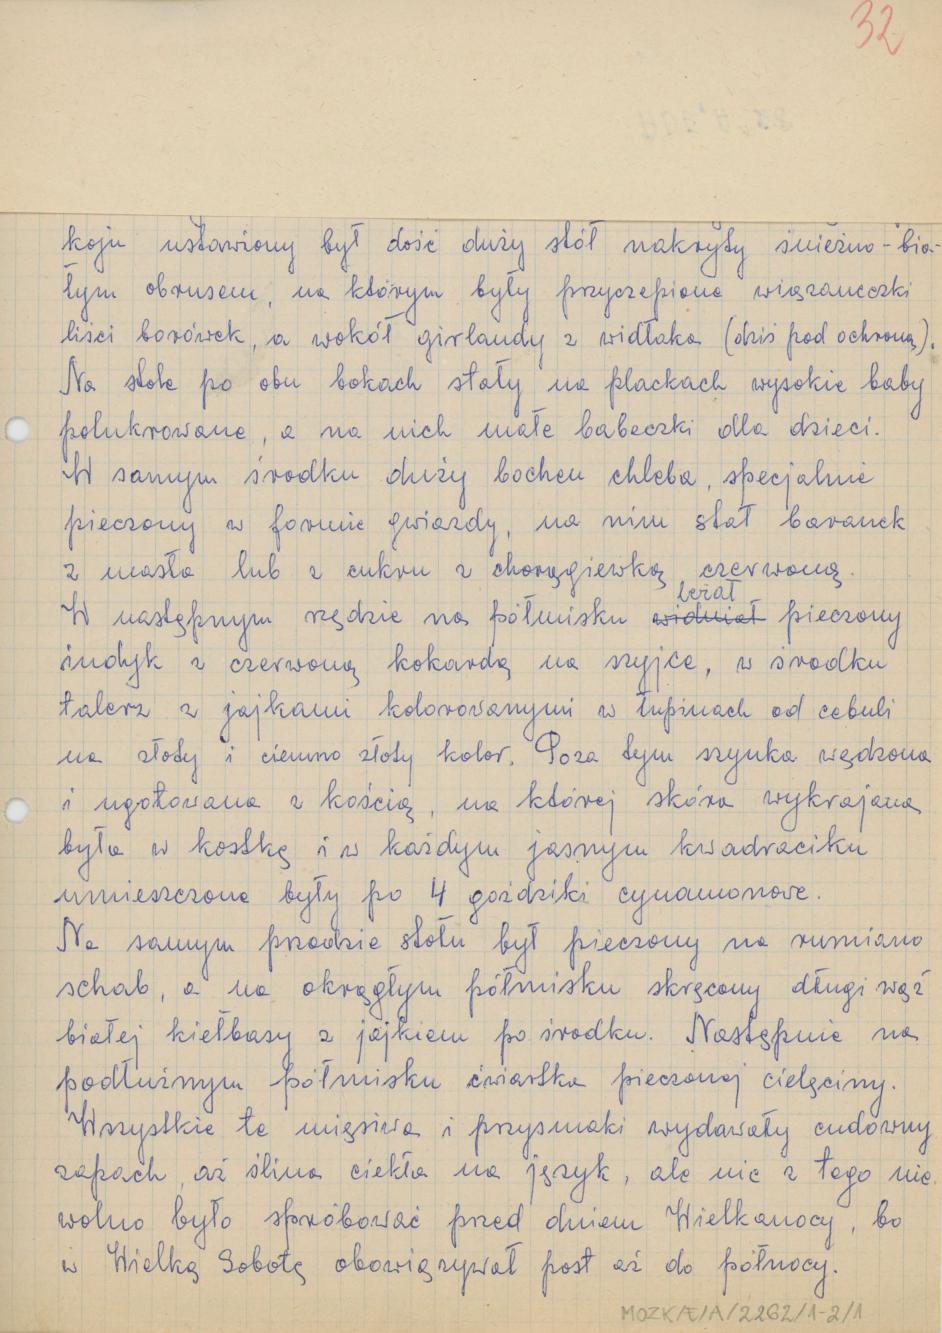 32
koju ustawiony był dość duży stół nakryty śnieżno-bia-
łym obrusem, na którym były przyczepione wiązaneczki
liści borówek, a wokół girlandy z widłaka (dziś pod ochroną).
Na stole po obu bokach stały na plackach wysokie baby
polukrowane, a na nich małe babeczki dla dzieci.
W samym środku duży bochen chleba, specjalnie
pieczony w formie gwiazdy, na nim stał baranek
z masła lub z cukru z chorągiewką czerwoną.
leżał
W następnym rzędzie na półmisku widniał pieczony
indyk z czerwoną kokardą na szyjce, w środku
talerz z jajkami kolorowanymi w łupinach od cebuli
na złoty i ciemno złoty kolor. Poza tym szynka wędzona
i ugotowana z kością, na której skóra wykrajana
była w kostkę i w każdym jasnym kwadraciku
umieszczone były po 4 goździki cynamonowe.
Na samym przodzie stołu był pieczony na rumiano
schab, a na okrągłym półmisku skręcony długi wąż
białej kiełbasy z jajkiem po środku. Następnie na
podłużnym półmisku ćwiartka pieczonej cielęciny.
Wszystkie te mięsiwa i przysmaki wydawały cudowny
zapach, aż ślina ciekła na język, ale nic z tego nie
wolno było spróbować przed dniem Wielkanocy, bo
w Wielką Sobotę obowiązywał post aż do północy.
MOZK/E/A/2262/1-2/1